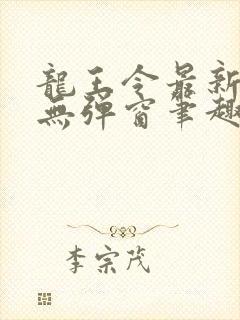 龍王令最新
無彈窗筆趣
李宗茂